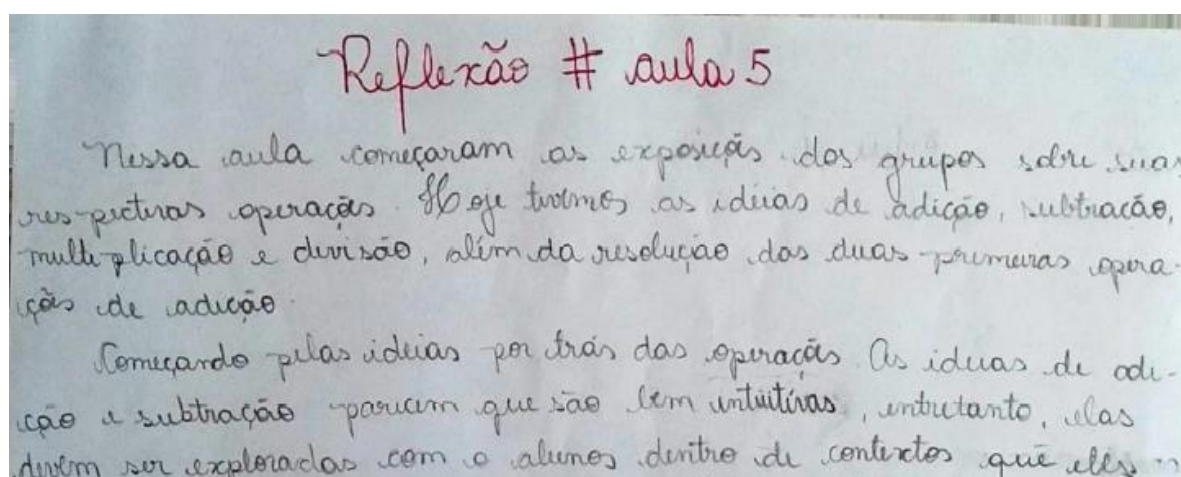 Reflexão # aula 5
Nessa aula começaram as exposições dos grupos sobre suas
respectivas operações. Hoje tivemos as idéias de adição, subtracão,
multiplicação e divisão, além da resolução das duas primeiras opera-
ções de adição.
Começando pelas ideias por trás das operações. As ideias de adi-
ção e subtração parecem que são bem intuitivas, entretanto, elas
devem ser exploradas com o alunos dentro de contextos que eles